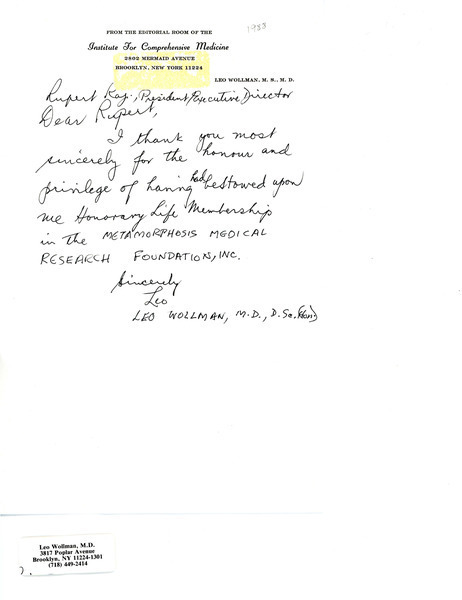 FROM THE EDITORIAL ROOM OF THE
1988
Institute For Comprehensive Medicine
2802 MERMAID AVENUE
BROOKLYN, NEW YORK 11224
LEO WOLLMAN, M. S., M. D.
Rupert Raj, President/Executive Director
Dear Rupert,
I thank you most
sincerely for the honour and
privilege of having had bestowed upon
me Honorary Life Membership
in the METAMORPHOSIS MEDICAL
RESEARCH FOUNDATION, INC.
Sincerely
Leo
LEO WOLLMAN, M.D., D.Sc.(Hon)
Leo Wollman, M.D.
3817 Poplar Avenue
Brooklyn, NY 11224-1301
(718) 449-2414